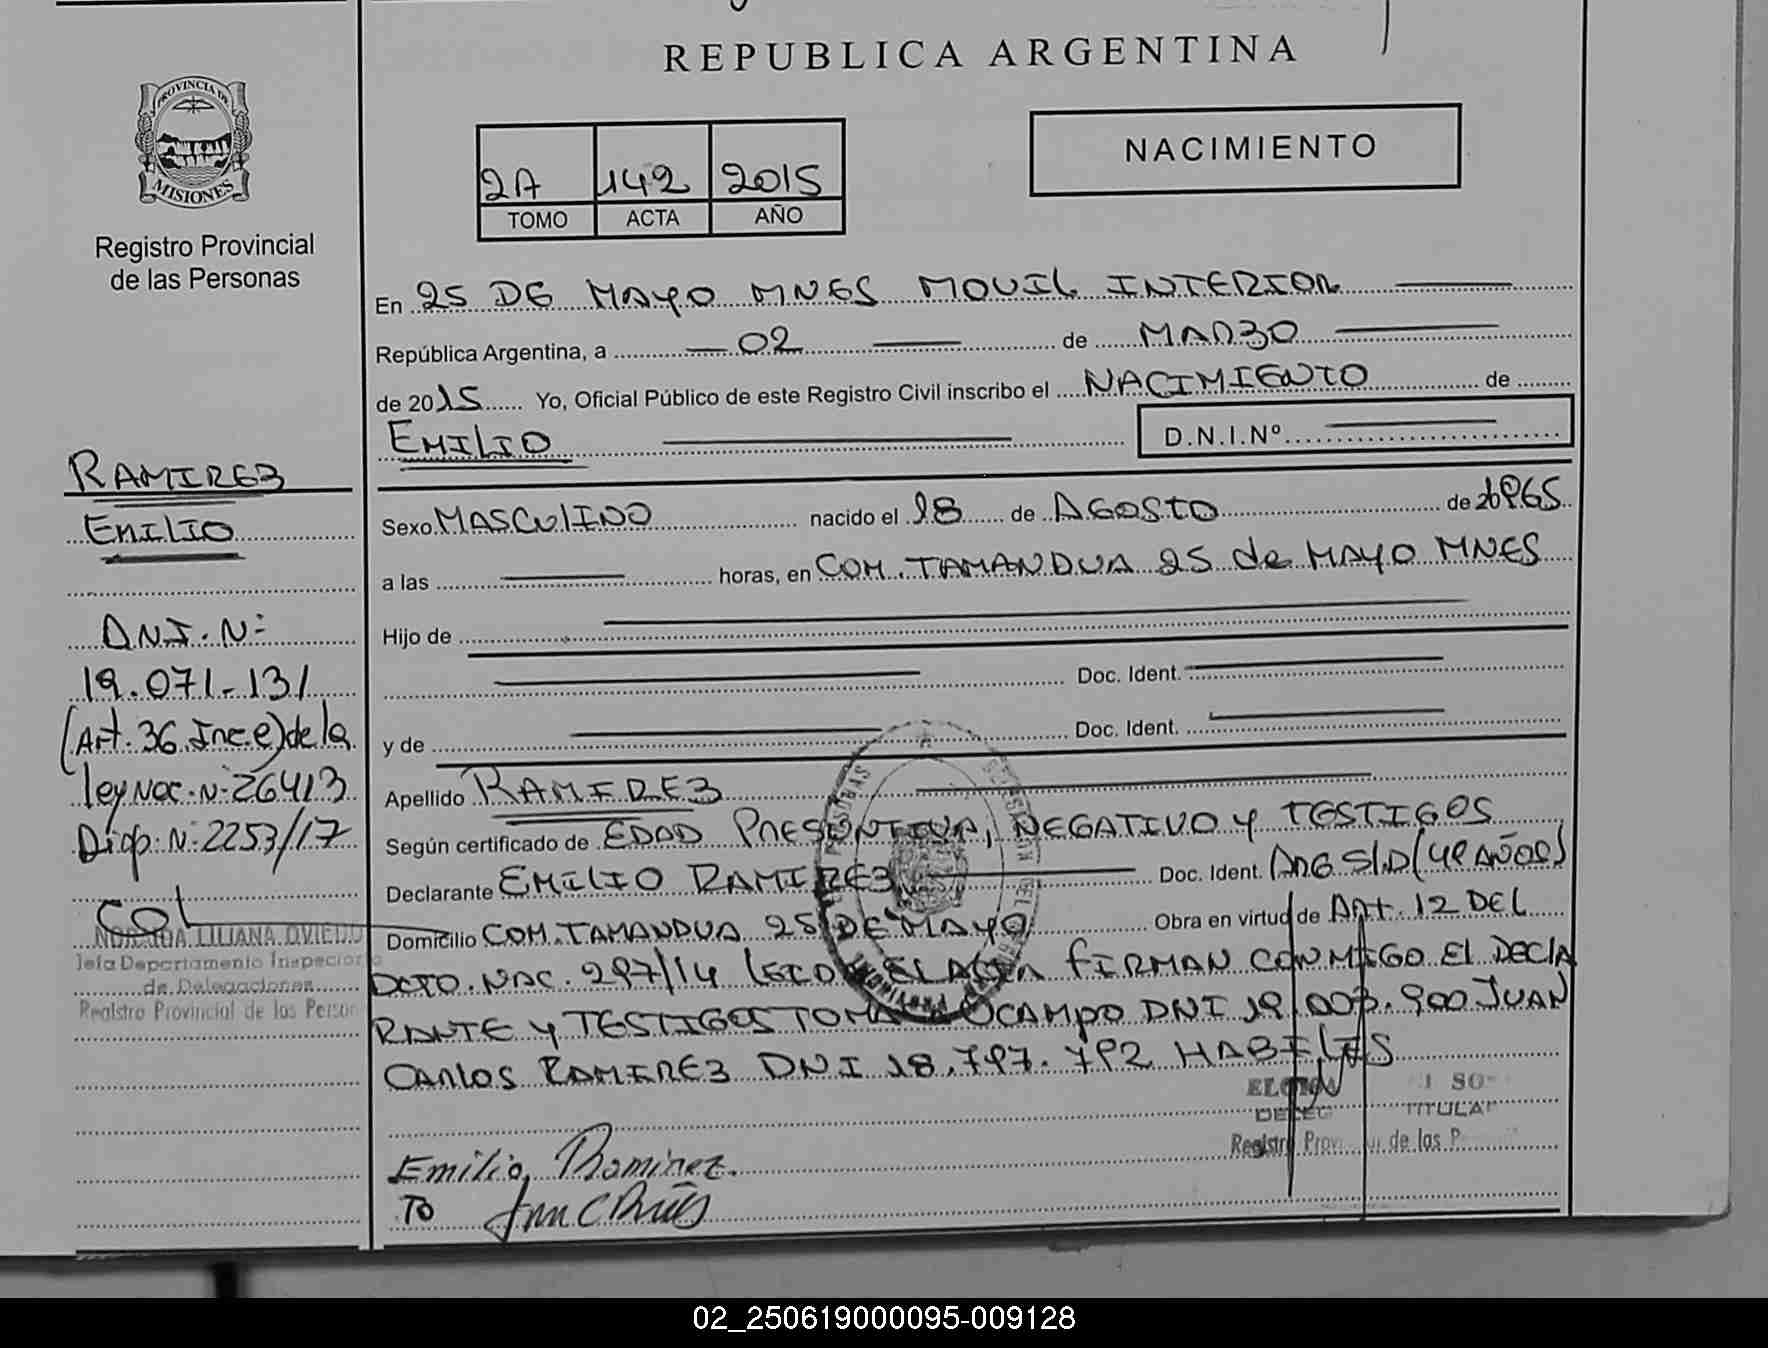 REPUBLICA ARGENTINA
PROVINCIA DE
MISIONES
Registro Provincial
de las Personas
2A 142 2015
TOMO ACTA AÑO
NACIMIENTO
En 25 DE MAYO MNES MOVIL INTERIOR
República Argentina, a 02 de MARZO
de 2015 Yo, Oficial Público de este Registro Civil inscribo el NACIMIENTO de
EMILIO D.N.I.Nº
Sexo MASCULINO nacido el 18 de AGOSTO de 1965
a las horas, en COM. TAMANDUA 25 de MAYO MNES
Hijo de
Doc. Ident.
y de Doc. Ident.
Apellido RAMIREZ
Según certificado de EDAD PRESUNTIVA, NEGATIVO Y TESTIGOS
Declarante EMILIO RAMIREZ Doc. Ident. ARG S/D (49 AÑOS)
Domicilio COM. TAMANDUA 25 DE MAYO Obra en virtud de Art. 12 DEL
DCTO. NAC. 297/14 LEIDA EL ACTA FIRMAN CONMIGO EL DECLA
RANTE Y TESTIGOS TOMAS OCAMPO DNI 19.003.900 JUAN
CARLOS RAMIREZ DNI 18.797.792 HABILES
TITULAR
Registro de las
Emilio Ramirez.
TO
RAMIREZ
EMILIO
D.N.I. N:
19.071-131
(Art. 36 Inc. e) de la
ley Nac. N: 26413
Disp. N: 2253/17
LILIANA OVIEDO
Jefa Departamento Inspector
de Delegaciones
Registro Provincial de las Person
02_250619000095-009128